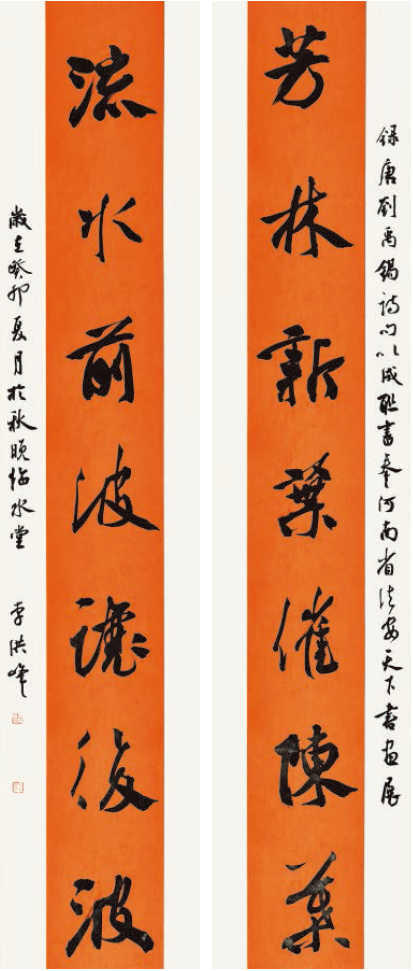 録唐劉禹錫詩句以成聯書奉河南省法安天下書畫展
芳林新葉催陳葉
流水前波讓後波
歲在癸卯夏月於秋晚臨水堂 李洪峰